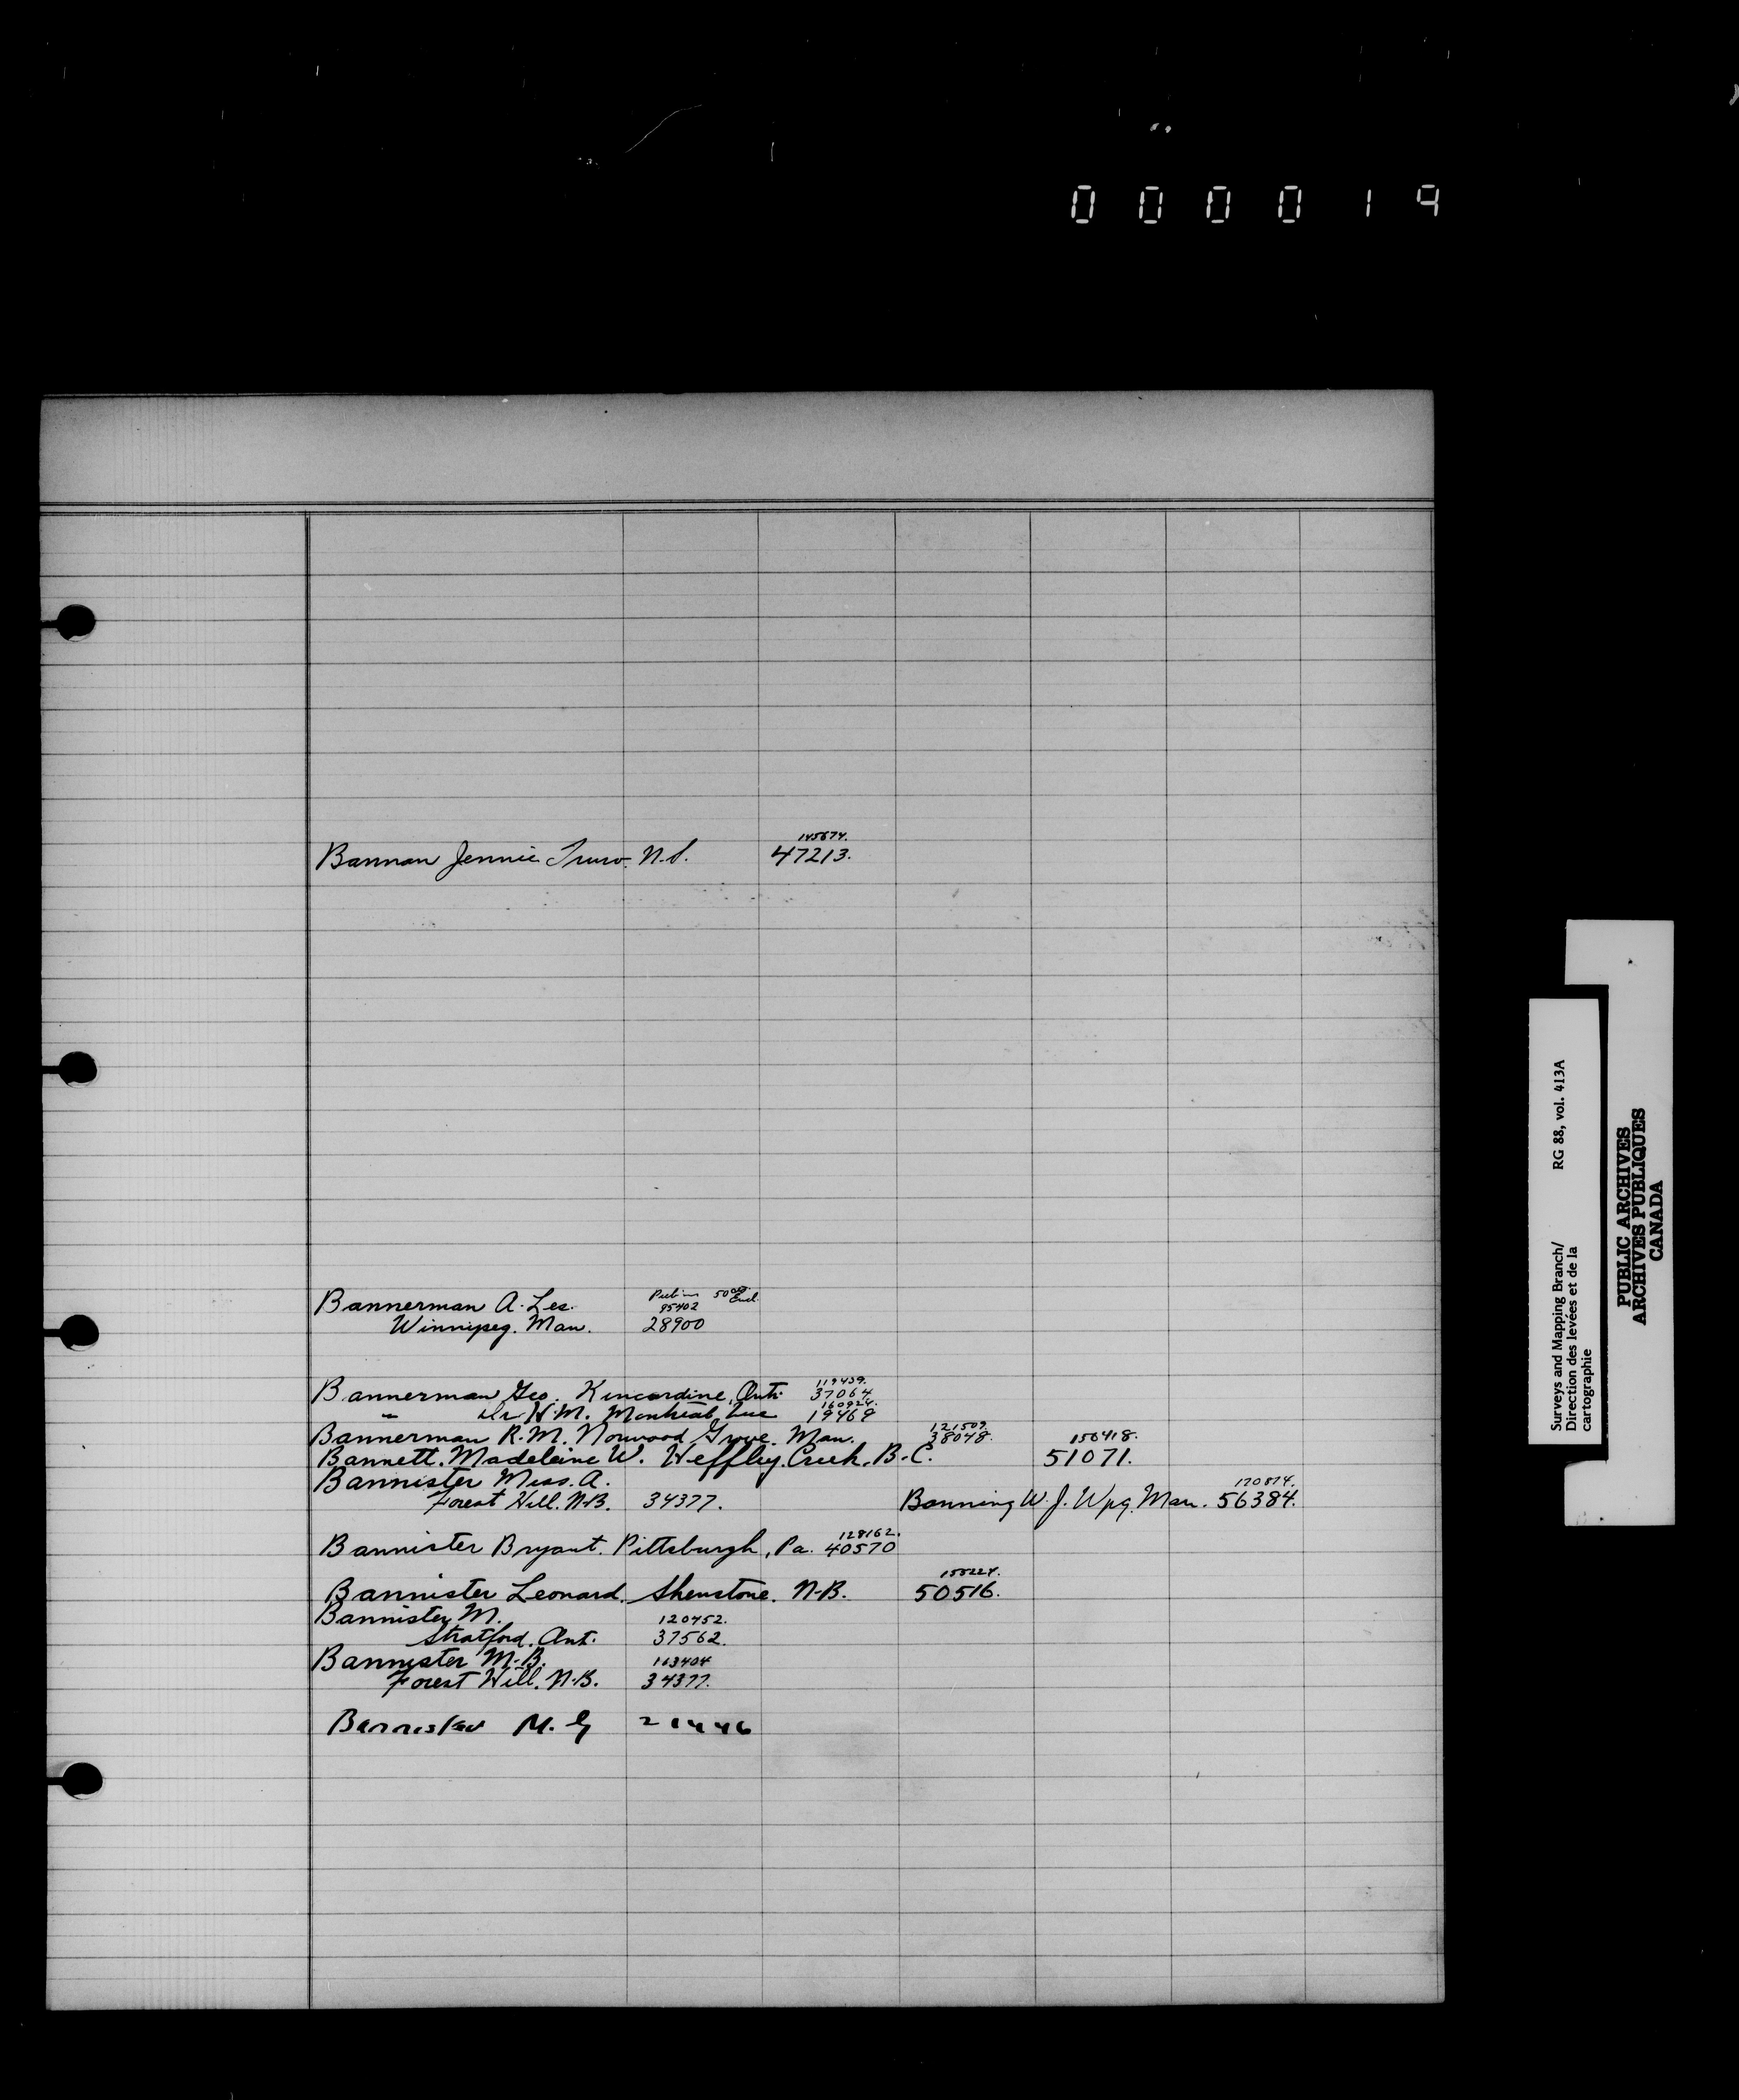 000019
145674.
Bannan Jennie Truro. N.S. 47213.
Bannerman A. Les. 50 00 Encl.
95402
Winnipeg. Man. 28900
119439.
Bannerman Geo. Kincardine, Ont. 37064.
160924.
" Dr H.M. Montreal, Que 19469
121509.
Bannerman R.M. Norwood Grove. Man. 38048.
150418.
Bannett. Madeleine W. Heffley Creek. B.C. 51071.
Bannister Miss. A.
170874.
Forest Hill. N.B. 34377. Banning W. J. Wpg. Man. 56384.
128162.
Bannister Bryant. Pittsburgh, Pa. 40570
155224.
Bannister Leonard. Shenstone. N.B. 50516.
Bannister M. 120452.
Stratford. Ont. 37562.
Bannister M.B. 163404
Forest Hill. N.B. 34377.
Bannister M. G 21446
Surveys and Mapping Branch/ RG 88, vol. 413A
Direction des levées et de la
cartographie
PUBLIC ARCHIVES
ARCHIVES PUBLIQUES
CANADA